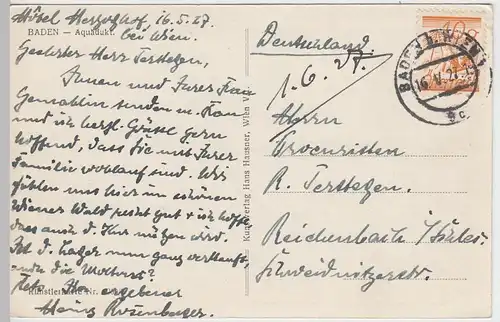 Hotel Herzoghof, 16.5.27.
BADEN — Aquädukt. bei Wien.
Geehrter Herr Terstegen,
Ihnen und Ihrer Frau
Gemahlin senden m. Frau
und ich herzl. Grüsse gern
hoffend, dass Sie mit Ihrer
Familie wohlauf sind. Wir
fühlen uns hier im schönen
Wiener Wald recht gut & ich hoffe,
dass auch d. Kur nützen wird.
Ist d. Lager nun ganz verkauft,
auch die
Ihr ergebener
Künstlerkarte Nr.
Heinz Rosenberger.
Kunstverlag Hans Hausner, Wien V
Deutschland.
1.6.27.
40
BADEN B. WIEN 1
16.V.27
Herrn
Prokuristen
R. Terstegen.
Reichenbach / Schles.
Schweidnitzerstr.